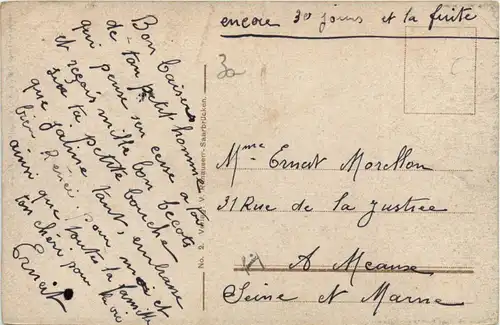 encore 30 jours et la fuite
Bon baisers
de ton petit homme
qui pense sen cesse a toi
et reçois mille bon becots
sur ta petite bouche
que j'aime tant, embrasse
bien René pour moi et
ainsi que toute la famille
ton chéri pour la vie
Ernest
3a
No. 2. Saarbrücken.
Mme Ernest Morellon
31 Rue de la Justice
A Meaux
Seine et Marne